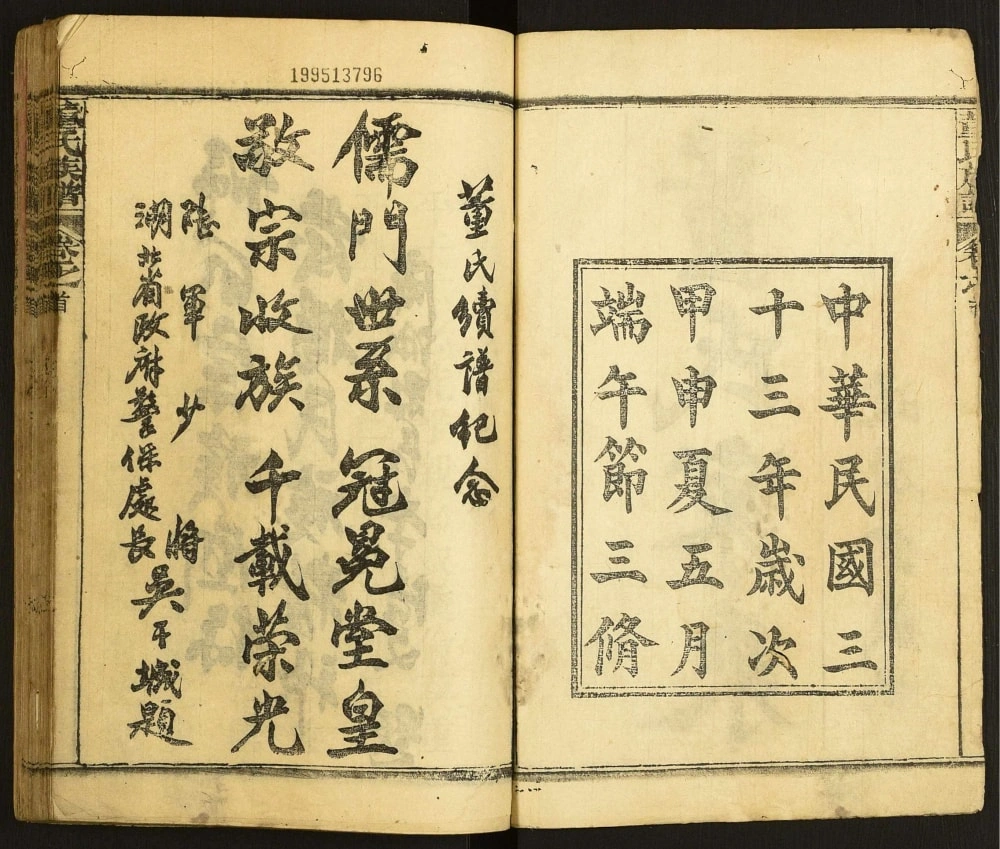 中華民國三
十三年歲次
甲申夏五月
端午節三脩
董氏續譜紀念
儒門世系冠冕堂皇
敬宗收族千載荣光
陸軍少將
湖北省政府警保處長吳干城題
董氏族譜 卷之首
199513796